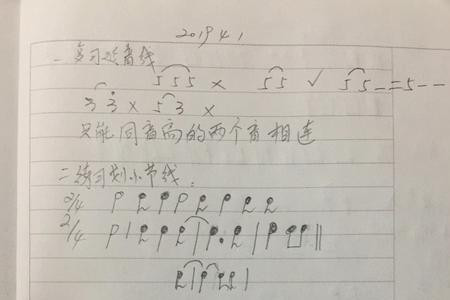 2019 4 1
一、复习延音线
5 5 5 × 5 5 ✓ 5 5 — = 5 - -
3 3 × 5 3 ×
只能同音高的两个音相连
二、练习划小节线:
2/4
2/4